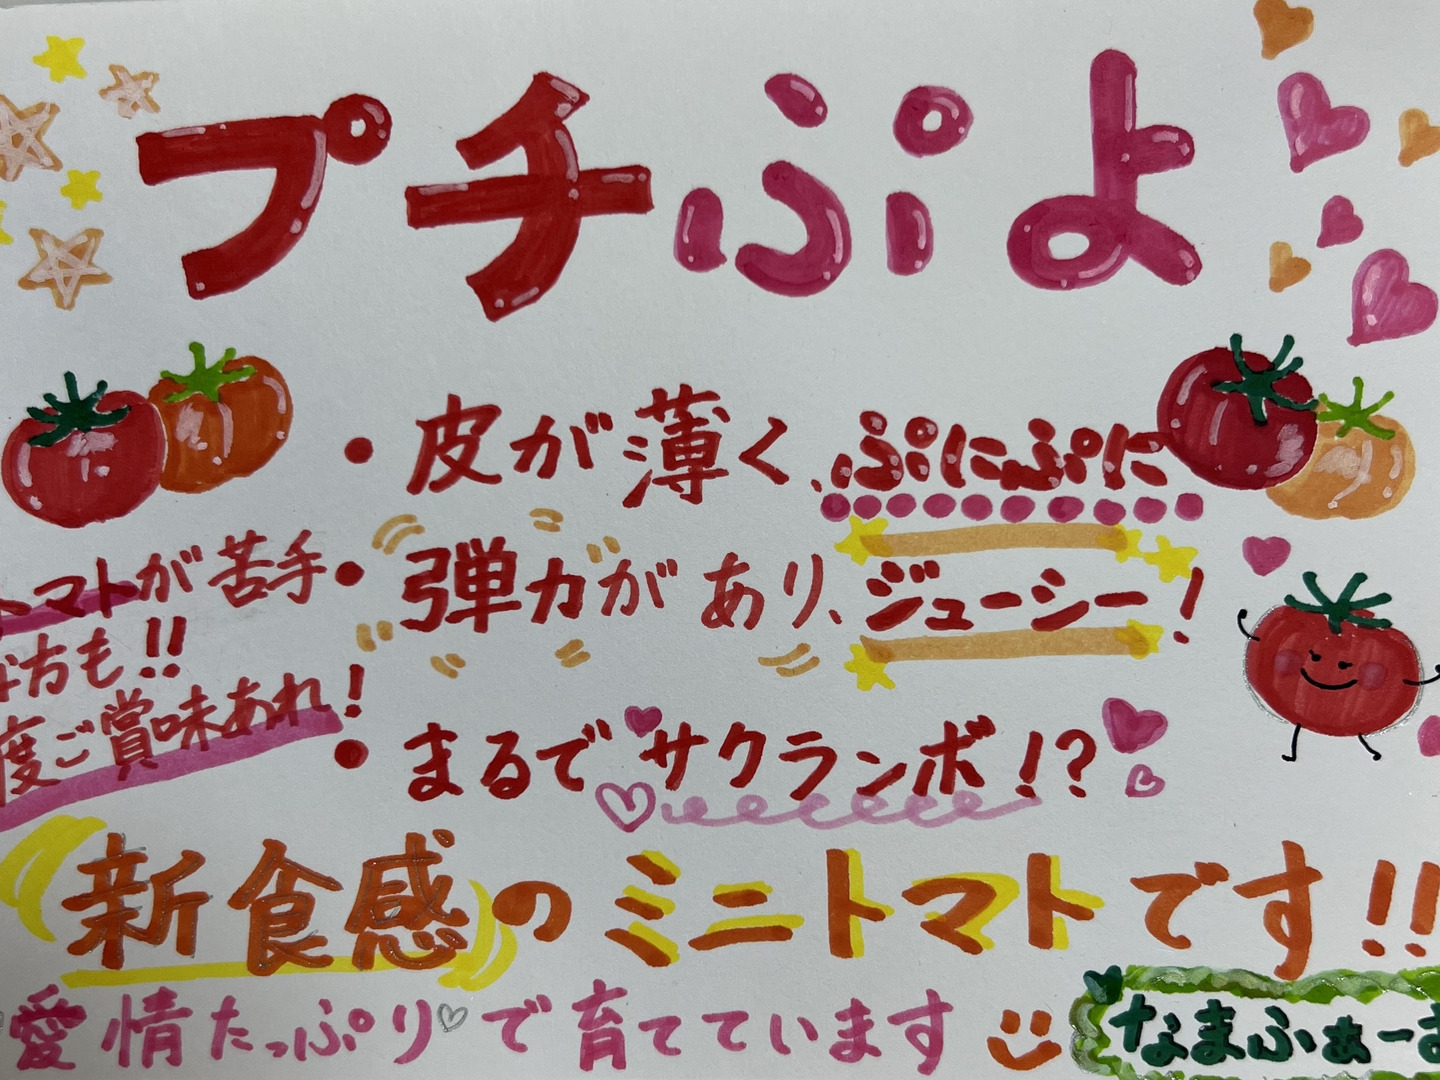 プチぷよ
・皮が薄く、ぷにぷに
・弾力があり、ジューシー!
・まるでサクランボ!?
トマトが苦手
な方も!!
度ご賞味あれ!
新食感のミニトマトです!!
愛情たっぷりで育てています
なまふぁーま